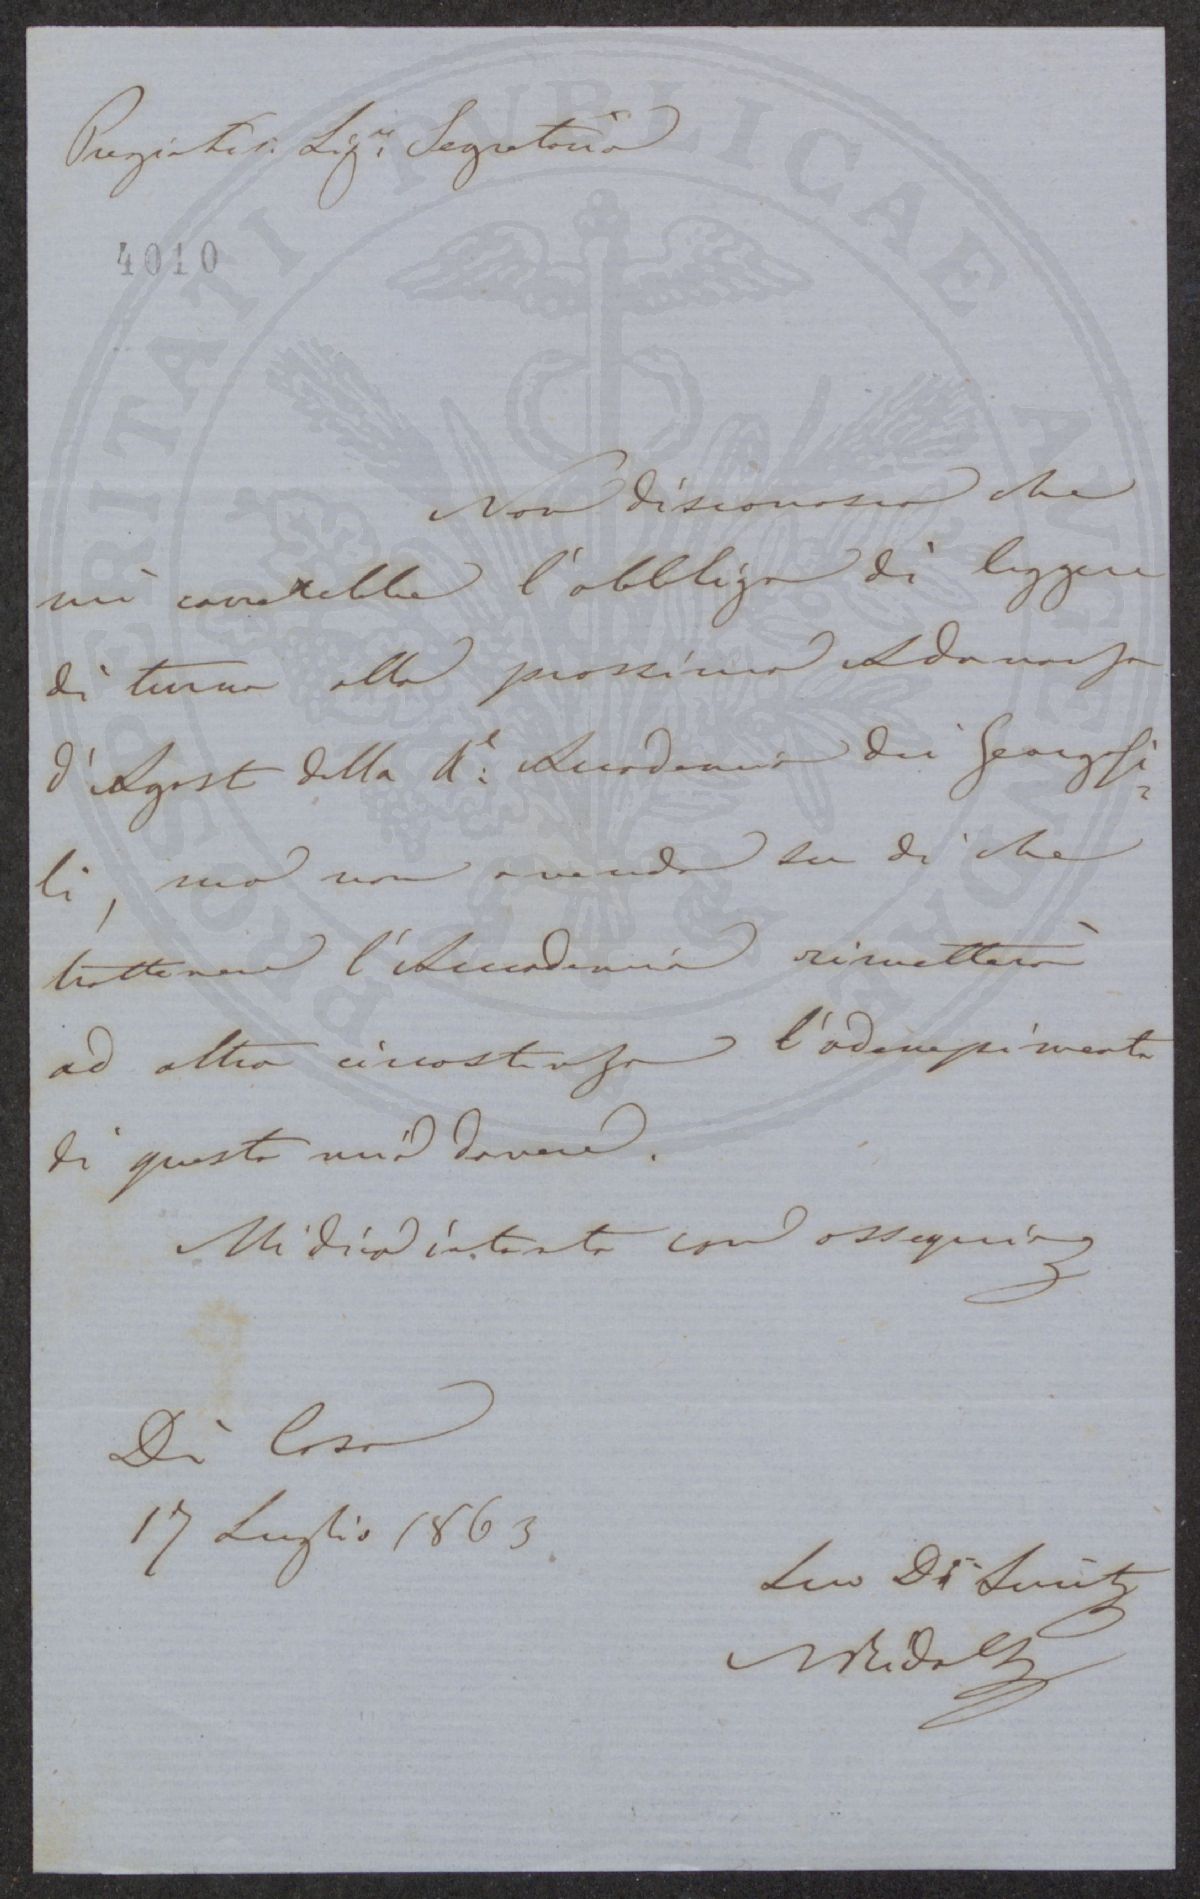 Pregiatis. Sigr. Segretario
4010
Non disconosco che
mi correrebbe l'obbligo di leggere
di turno alla prossima Adunanza
d'Agosto della Rl. Accademia dei Georgofi=
li, ma non avendo su di che
trattenere l'Accademia rimetterò
ad altra circostanza l'adempimento
di questo mio dovere.
Mi dico intanto con ossequio
Di Casa
17 Luglio 1863.
Suo Di
N Ridolfi
PROSPERITATI PUBLICAE AUGENDAE